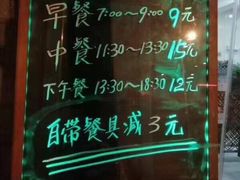 早餐 7:00~9:00 9元
中餐 11:30~13:30 15元
下午餐 13:30~18:30 12元
自带餐具减3元